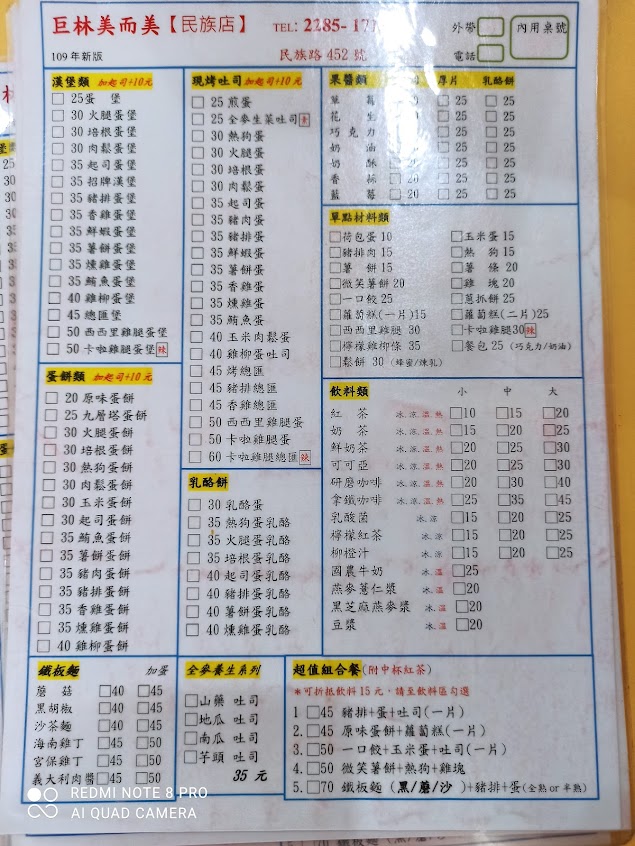 巨林美而美【民族店】 TEL: 2285-17
外帶 內用桌號
電話
109年新版 民族路 452 號
漢堡類 加起司+10元
25蛋 堡
30 火腿蛋堡
30 培根蛋堡
30 肉鬆蛋堡
35 起司蛋堡
35 招牌漢堡
35 豬排蛋堡
35 香雞蛋堡
35 鮮蝦蛋堡
35 薯餅蛋堡
35 燻雞蛋堡
35 鮪魚蛋堡
40 雞柳蛋堡
45 總匯堡
50 西西里雞腿蛋堡
50 卡啦雞腿蛋堡 辣
蛋餅類 加起司+10元
20 原味蛋餅
25 九層塔蛋餅
30 火腿蛋餅
30 培根蛋餅
30 熱狗蛋餅
30 肉鬆蛋餅
30 玉米蛋餅
30 起司蛋餅
35 鮪魚蛋餅
35 薯餅蛋餅
35 豬肉蛋餅
35 豬排蛋餅
35 香雞蛋餅
35 燻雞蛋餅
40 雞柳蛋餅
現烤吐司 加起司+10元
25 煎蛋
25 全麥生菜吐司 素
30 熱狗蛋
30 火腿蛋
30 培根蛋
30 肉鬆蛋
35 起司蛋
35 豬肉蛋
35 豬排蛋
35 鮮蝦蛋
35 薯餅蛋
35 香雞蛋
35 燻雞蛋
35 鮪魚蛋
40 玉米肉鬆蛋
40 雞柳蛋吐司
45 烤總匯
45 豬排總匯
45 香雞總匯
50 西西里雞腿蛋
50 卡啦雞腿蛋
60 卡啦雞腿總匯 辣
乳酪餅
30 乳酪蛋
35 熱狗蛋乳酪
35 火腿蛋乳酪
35 培根蛋乳酪
40 起司蛋乳酪
40 豬排蛋乳酪
40 薯餅蛋乳酪
40 燻雞蛋乳酪
果醬類 厚片 乳酪餅
草 莓 25 25
花 生 25 25
巧 克 力 25 25
奶 油 25 25
奶 酥 25 25
香 蒜 20 25 25
藍 莓 20 25 25
單點材料類
荷包蛋 10 玉米蛋 15
豬排肉 15 熱 狗 15
薯 餅 15 薯 條 20
微笑薯餅 20 雞 塊 20
一口餃 25 蔥抓餅 25
蘿蔔糕(一片)15 蘿蔔糕(二片)25
西西里雞腿 30 卡啦雞腿30 辣
檸檬雞柳條 35 餐包 25 (巧克力/奶油)
鬆餅 30 (蜂蜜/煉乳)
飲料類 小 中 大
紅 茶 冰.涼.溫.熱 10 15 20
奶 茶 冰.涼.溫.熱 15 20 25
鮮奶茶 冰.涼.溫.熱 20 25 30
可可亞 冰.涼.溫.熱 20 25 30
研磨咖啡 冰.涼.溫.熱 20 30 40
拿鐵咖啡 冰.涼.溫.熱 25 35 45
乳酸菌 冰.涼 15 20 25
檸檬紅茶 冰.涼 15 20 25
柳橙汁 冰.涼 15 20 25
國農牛奶 冰.溫 25
燕麥薏仁漿 冰.溫 20
黑芝麻燕麥漿 冰.溫 20
豆漿 冰.溫 20
鐵板麵 加蛋
蘑 菇 40 45
黑胡椒 40 45
沙茶麵 40 45
海南雞丁 45 50
宮保雞丁 45 50
義大利肉醬 45 50
全麥養生系列
山藥 吐司
地瓜 吐司
南瓜 吐司
芋頭 吐司
35 元
超值組合餐(附中杯紅茶)
*可折抵飲料15元,請至飲料區勾選
1. 45 豬排+蛋+吐司(一片)
2. 45 原味蛋餅+蘿蔔糕(一片)
3. 50 一口餃+玉米蛋+吐司(一片)
4. 50 微笑薯餅+熱狗+雞塊
5. 70 鐵板麵 (黑/蘑/沙 )+豬排+蛋(全熟 or 半熟)
REDMI NOTE 8 PRO
AI QUAD CAMERA